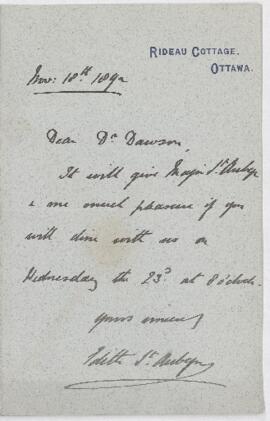 RIDEAU COTTAGE.
OTTAWA.
Nov: 18th 1892
Dear Dr Dawson,
It will give Major St Aubyn
& me much pleasure if you
will dine with us on
Wednesday the 23d at 8 o'clock.
Yours sincerely
Edith St Aubyn